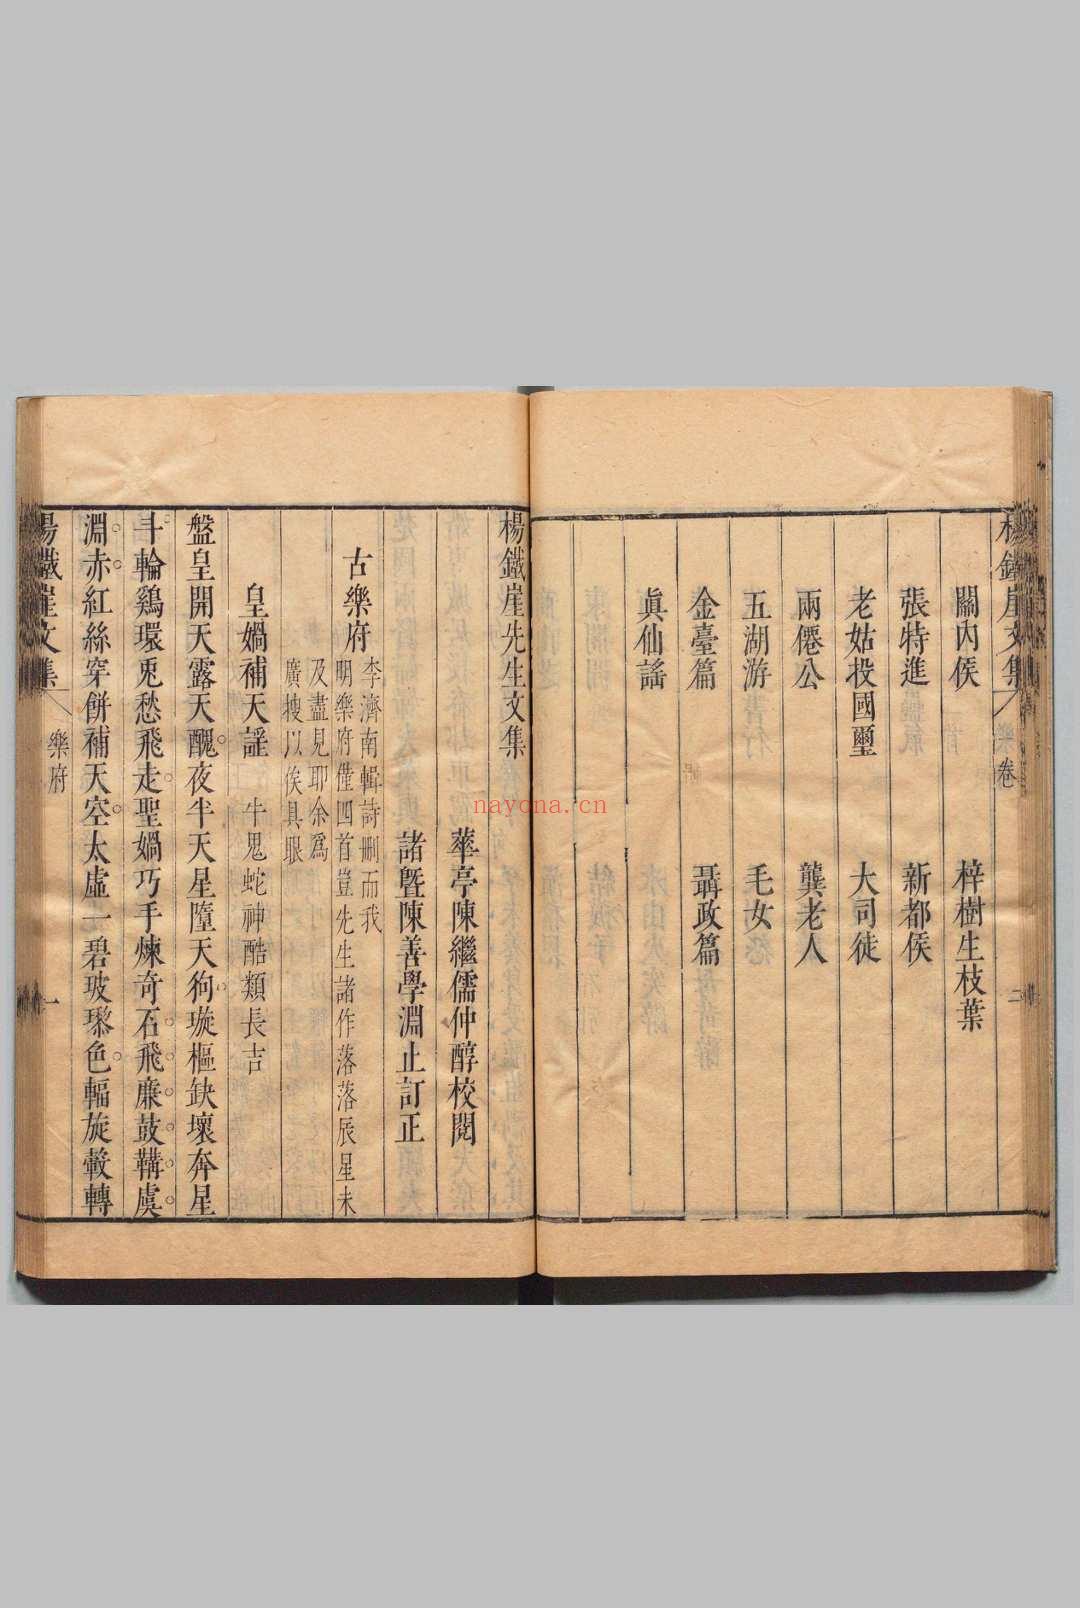 楊鐵崖文集 樂卷 二
關內侯 梓樹生枝葉
張特進 新都侯
老姑投國璽 大司徒
兩僊公 龔老人
五湖游 毛女
金臺篇 聶政篇
眞仙謠
楊鐵崖先生文集
華亭陳繼儒仲醇校閱
諸曁陳善學淵止訂正
古樂府
李濟南輯詩刪而我
明樂府僅四首豈先生諸作落落辰星未
及盡見耶余爲
廣搜以俟具眼
皇媧補天謠 牛鬼蛇神酷類長吉
盤皇開天露天醜夜半天星墮天狗璇樞缺壞奔星
斗輪鷄環兎愁飛走聖媧巧手煉奇石飛廉鼓鞲虞
淵赤紅絲穿餅補天空太虛一碧玻瓈色輻旋轂轉
楊鐵崖文集 樂府 一
nayona.cn